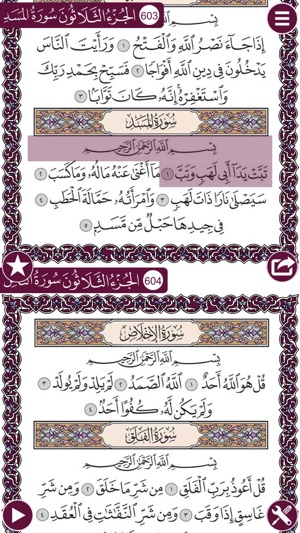 الجزء الثلاثون سورة المسد 603
بِسْمِ اللَّهِ الرَّحْمَٰنِ الرَّحِيمِ
إِذَا جَاءَ نَصْرُ اللَّهِ وَالْفَتْحُ ١ وَرَأَيْتَ النَّاسَ
يَدْخُلُونَ فِي دِينِ اللَّهِ أَفْوَاجًا ٢ فَسَبِّحْ بِحَمْدِ رَبِّكَ
وَاسْتَغْفِرْهُ إِنَّهُ كَانَ تَوَّابًا ٣
سُورَةُ المَسَدِ
بِسْمِ اللَّهِ الرَّحْمَٰنِ الرَّحِيمِ
تَبَّتْ يَدَا أَبِي لَهَبٍ وَتَبَّ ١ مَا أَغْنَىٰ عَنْهُ مَالُهُ وَمَا كَسَبَ ٢
سَيَصْلَىٰ نَارًا ذَاتَ لَهَبٍ ٣ وَامْرَأَتُهُ حَمَّالَةَ الْحَطَبِ ٤
فِي جِيدِهَا حَبْلٌ مِّن مَّسَدٍ ٥
الجزء الثلاثون سورة 604
سُورَةُ الإِخْلَاصِ
بِسْمِ اللَّهِ الرَّحْمَٰنِ الرَّحِيمِ
قُلْ هُوَ اللَّهُ أَحَدٌ ١ اللَّهُ الصَّمَدُ ٢ لَمْ يَلِدْ وَلَمْ يُولَدْ ٣
وَلَمْ يَكُن لَّهُ كُفُوًا أَحَدٌ ٤
سُورَةُ الفَلَقِ
بِسْمِ اللَّهِ الرَّحْمَٰنِ الرَّحِيمِ
قُلْ أَعُوذُ بِرَبِّ الْفَلَقِ ١ مِن شَرِّ مَا خَلَقَ ٢ وَمِن شَرِّ
غَاسِقٍ إِذَا وَقَبَ ٣ وَمِن شَرِّ النَّفَّاثَاتِ فِي الْعُقَدِ ٤